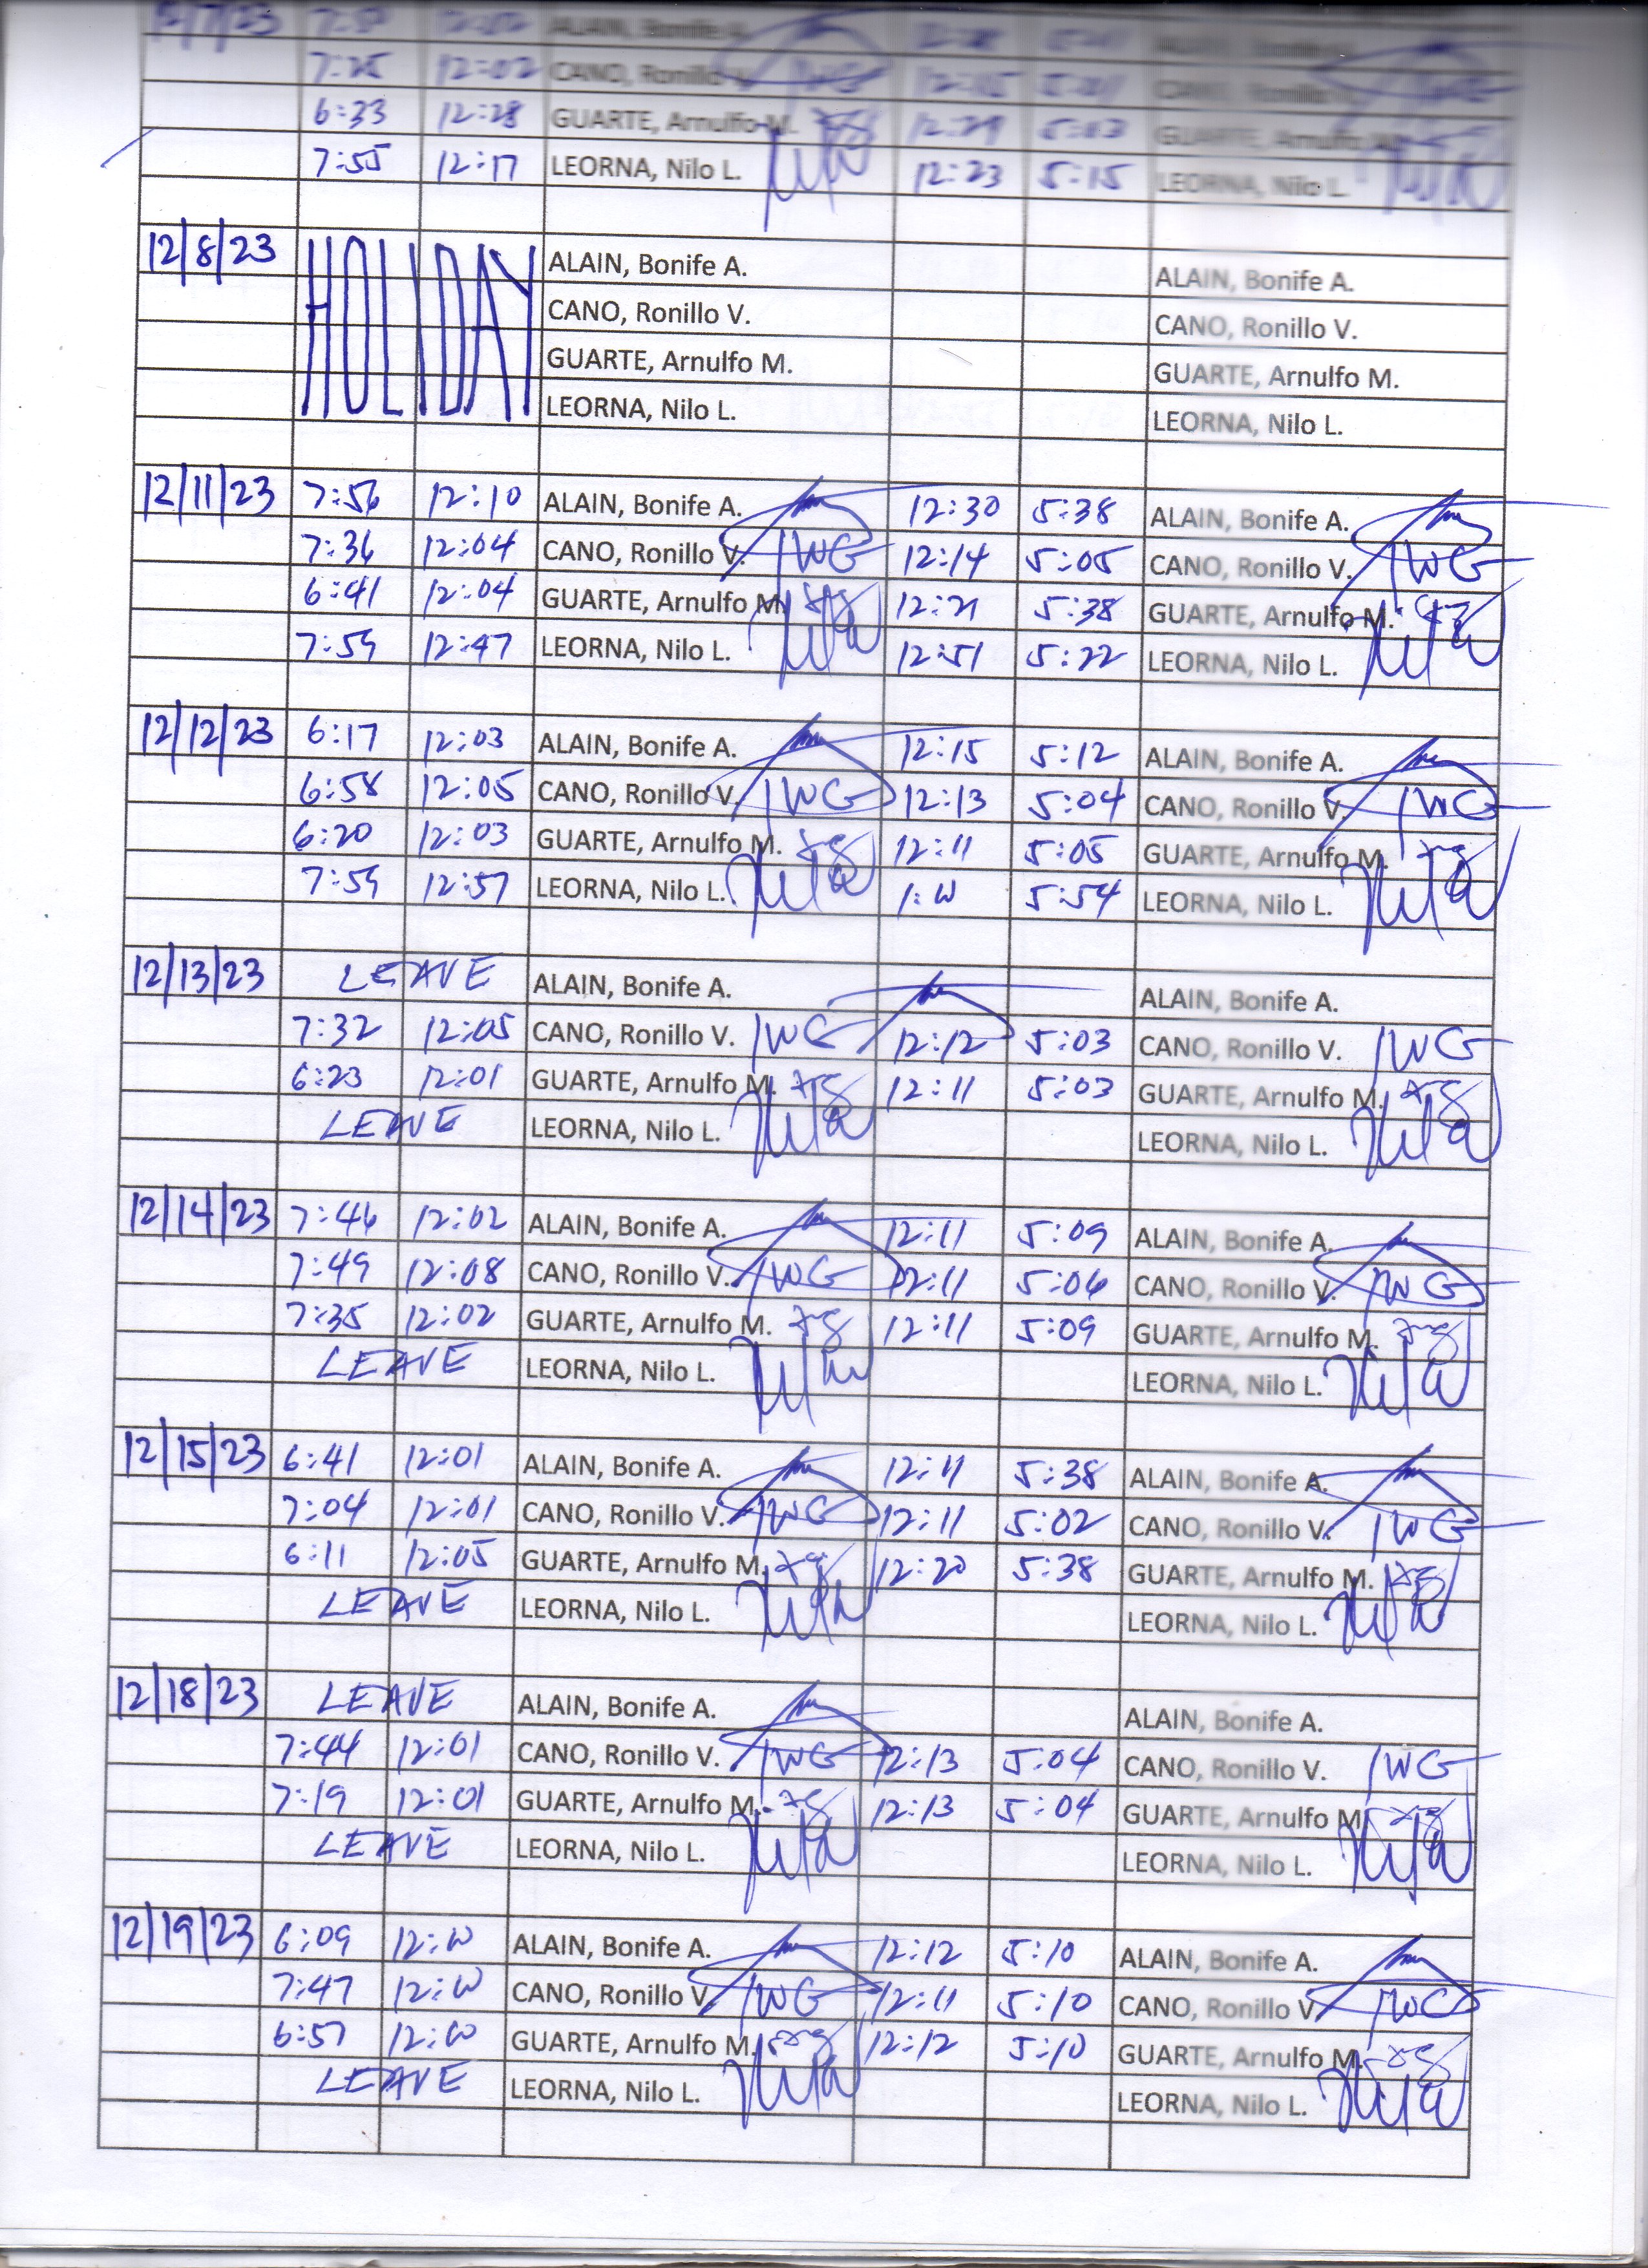 12/7/23 ALAIN, Bonife A.
7:25 12:02 CANO, Ronillo V. 12:15
6:33 12:28 GUARTE, Arnulfo M. 12:29 5:03 GUARTE, Arnulfo M.
7:55 12:17 LEORNA, Nilo L. 12:23 5:15 LEORNA, Nilo L.
12/8/23 HOLIDAY ALAIN, Bonife A. ALAIN, Bonife A.
CANO, Ronillo V. CANO, Ronillo V.
GUARTE, Arnulfo M. GUARTE, Arnulfo M.
LEORNA, Nilo L. LEORNA, Nilo L.
12/11/23 7:56 12:10 ALAIN, Bonife A. 12:30 5:38 ALAIN, Bonife A.
7:36 12:04 CANO, Ronillo V. 12:14 5:05 CANO, Ronillo V.
6:41 12:04 GUARTE, Arnulfo M. 12:21 5:38 GUARTE, Arnulfo M.
7:59 12:47 LEORNA, Nilo L. 12:51 5:22 LEORNA, Nilo L.
12/12/23 6:17 12:03 ALAIN, Bonife A. 12:15 5:12 ALAIN, Bonife A.
6:58 12:05 CANO, Ronillo V. 12:13 5:04 CANO, Ronillo V.
6:20 12:03 GUARTE, Arnulfo M. 12:11 5:05 GUARTE, Arnulfo M.
7:59 12:57 LEORNA, Nilo L. 5:54 LEORNA, Nilo L.
12/13/23 LEAVE ALAIN, Bonife A. ALAIN, Bonife A.
7:32 12:05 CANO, Ronillo V. 12:12 5:03 CANO, Ronillo V.
6:23 12:01 GUARTE, Arnulfo M. 12:11 5:03 GUARTE, Arnulfo M.
LEAVE LEORNA, Nilo L. LEORNA, Nilo L.
12/14/23 7:46 12:02 ALAIN, Bonife A. 12:11 5:09 ALAIN, Bonife A.
7:49 12:08 CANO, Ronillo V. 12:11 5:06 CANO, Ronillo V.
7:35 12:02 GUARTE, Arnulfo M. 12:11 5:09 GUARTE, Arnulfo M.
LEAVE LEORNA, Nilo L. LEORNA, Nilo L.
12/15/23 6:41 12:01 ALAIN, Bonife A. 12:11 5:38 ALAIN, Bonife A.
7:04 12:01 CANO, Ronillo V. 12:11 5:02 CANO, Ronillo V.
6:11 12:05 GUARTE, Arnulfo M. 12:20 5:38 GUARTE, Arnulfo M.
LEAVE LEORNA, Nilo L. LEORNA, Nilo L.
12/18/23 LEAVE ALAIN, Bonife A. ALAIN, Bonife A.
7:44 12:01 CANO, Ronillo V. 12:13 5:04 CANO, Ronillo V.
7:19 12:01 GUARTE, Arnulfo M. 12:13 5:04 GUARTE, Arnulfo M.
LEAVE LEORNA, Nilo L. LEORNA, Nilo L.
12/19/23 6:09 ALAIN, Bonife A. 12:12 5:10 ALAIN, Bonife A.
7:47 CANO, Ronillo V. 12:11 5:10 CANO, Ronillo V.
6:57 GUARTE, Arnulfo M. 12:12 5:10 GUARTE, Arnulfo M.
LEAVE LEORNA, Nilo L. LEORNA, Nilo L.